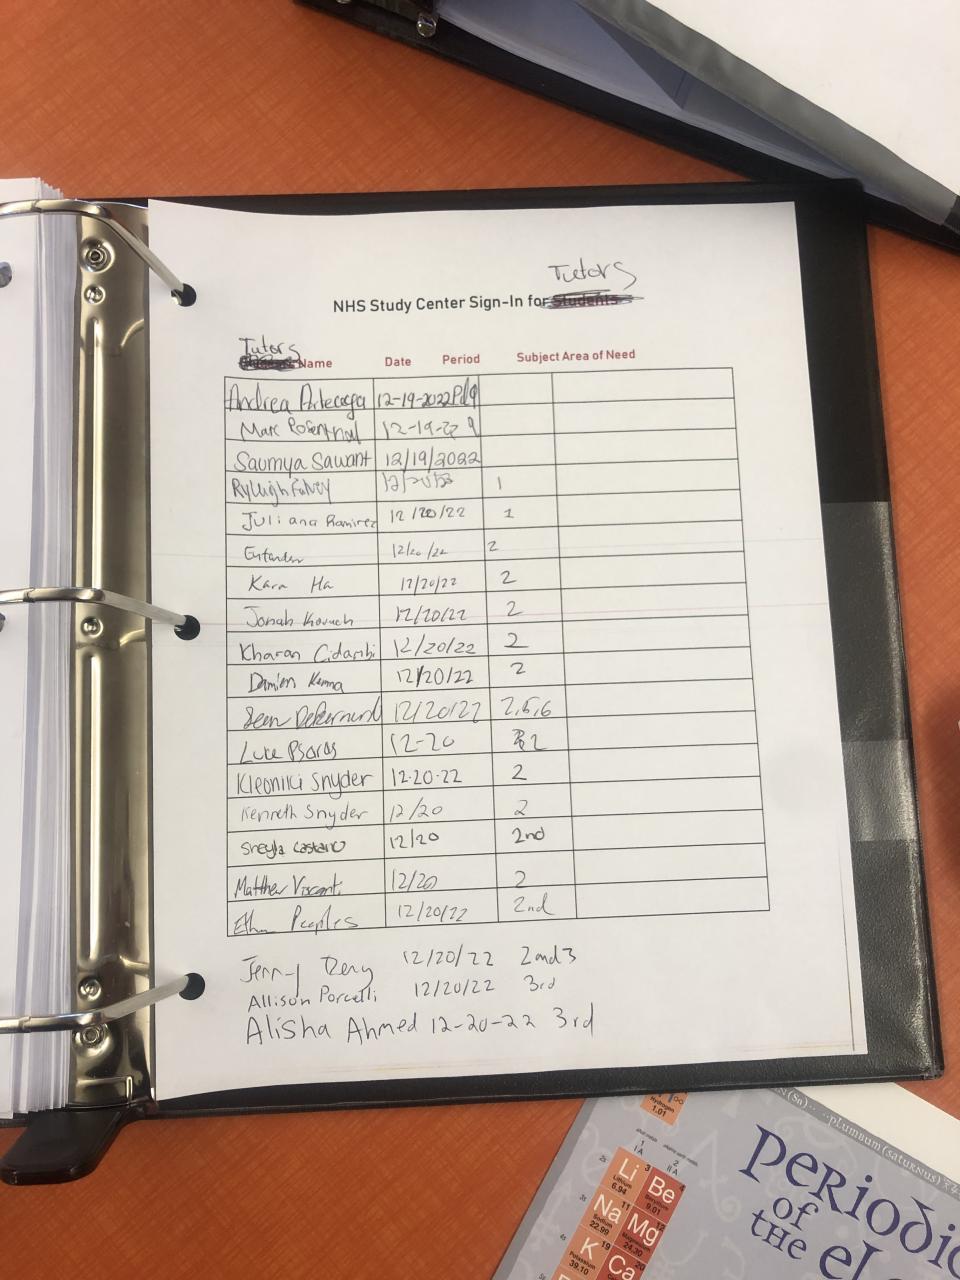 Tutors
NHS Study Center Sign-In for Students
Tutors
Name Date Period Subject Area of Need
Andrea Arteaga 12-19-2022 Pd 9
Marc Rosenthal 12-19-22 9
Saumya Sawant 12/19/2022
Ryleigh Falvey 12/20/22 1
Juliana Ramirez 12/20/22 1
12/20/22 2
Kara Ha 12/20/22 2
Jonah 12/20/22 2
Kharan Cidambi 12/20/22 2
Damien 12/20/22 2
Sean 12/20/22 2,5,6
Luke Psaras 12-20 2
Kleoniki Snyder 12-20-22 2
Kenneth Snyder 12/20 2
Sheyla Castano 12/20 2nd
Matthew Visconti 12/20 2
Ethan Peoples 12/20/22 2nd
Jenny 12/20/22 2 and 3
Allison Porcelli 12/20/22 3rd
Alisha Ahmed 12-20-22 3rd
Hydrogen
1.01
(Sn) plumbum (saturnus)
1
IA
2
II A
3 4
Li Be
Lithium
6.94 9.01
11 12
Na Mg
Sodium Magnesium
22.99 24.30
19 20
K Ca
Potassium
39.10
Periodic
of
the el